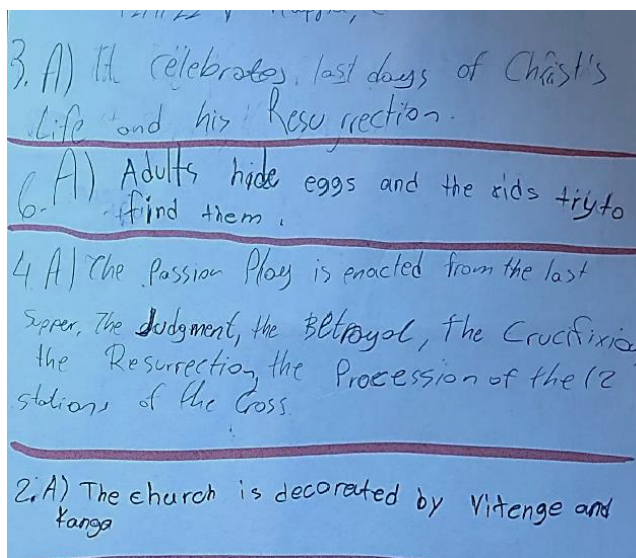 3. A) It celebrates last days of Christ's
Life and his Resurrection.
6. A) Adults hide eggs and the kids try to
find them.
4 A) The Passion Play is enacted from the last
Supper, The Judgment, the Betrayal, the Crucifixio
the Resurrection, the Procession of the 12
stations of the Cross.
2. A) The church is decorated by Vitenge and
Kanga